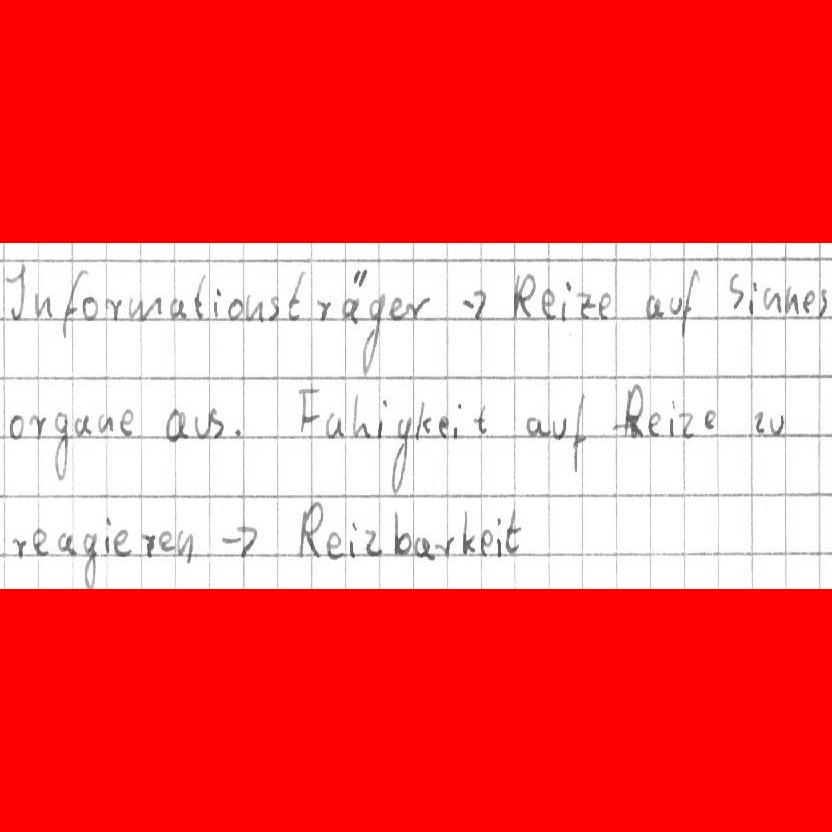 Informationsträger → Reize auf Sinnes
organe aus. Fahigkeit auf Reize zu
reagieren → Reizbarkeit